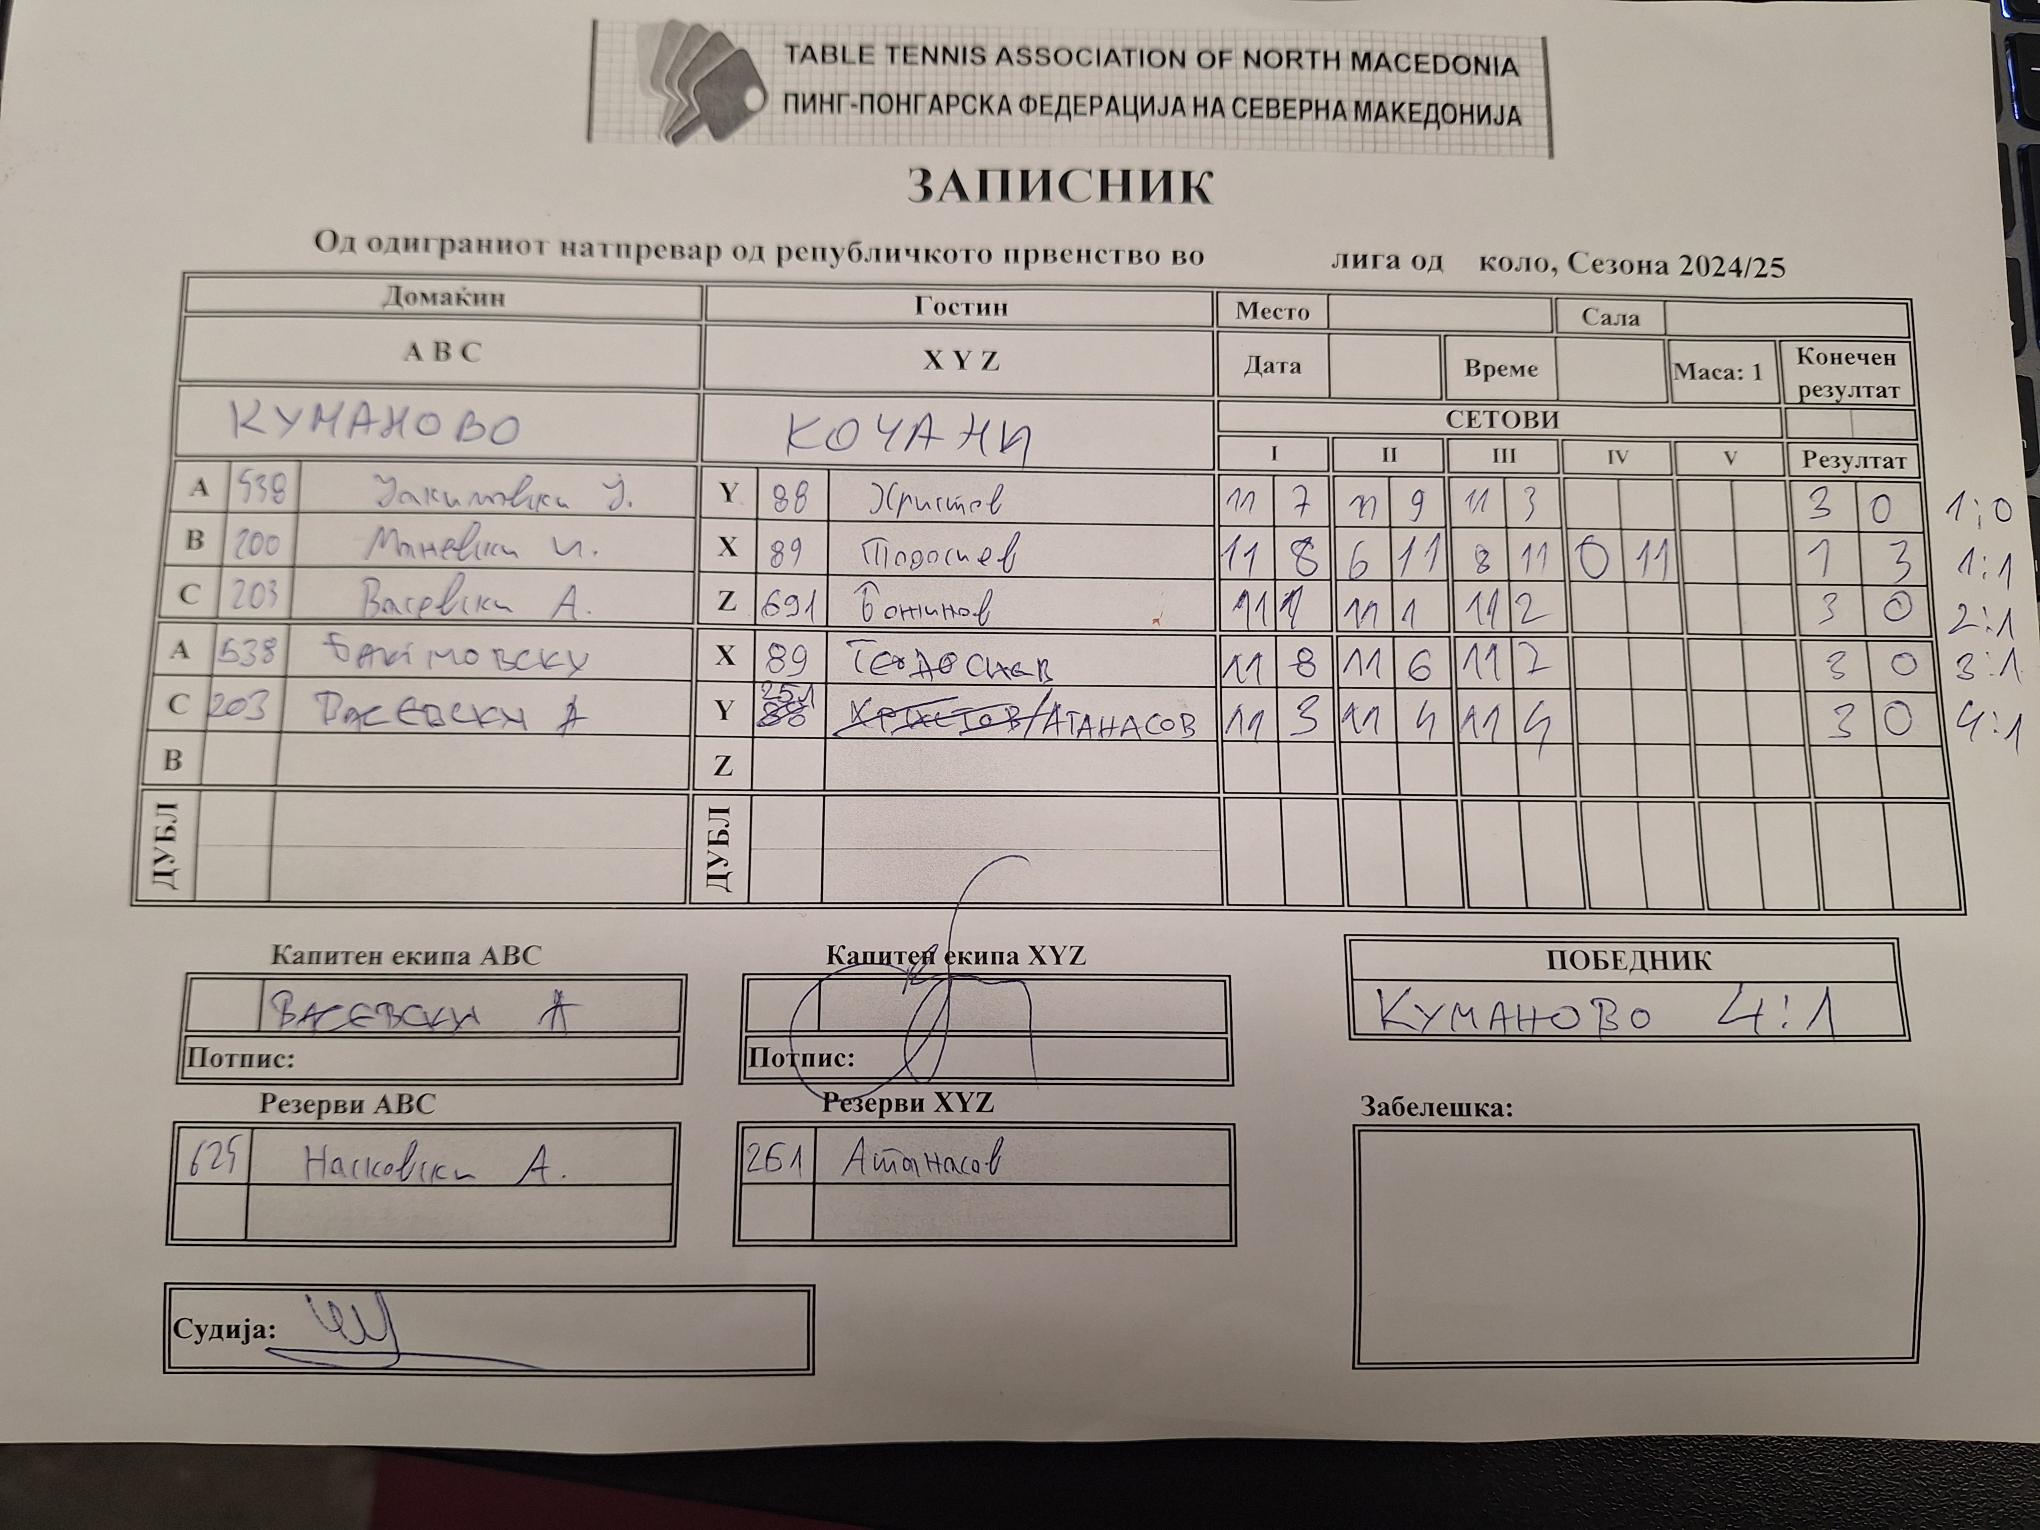 TABLE TENNIS ASSOCIATION OF NORTH MACEDONIA
ПИНГ-ПОНГАРСКА ФЕДЕРАЦИЈА НА СЕВЕРНА МАКЕДОНИЈА
ЗАПИСНИК
Од одиграниот натпревар од републичкото првенство во лига од коло, Сезона 2024/25
Домаќин Гостин Место Сала
A B C X Y Z Дата Време Маса: 1 Конечен резултат
КУМАНОВО КОЧАНИ СЕТОВИ
I II III IV V Резултат
A 538 Јакимовски Ј. Y 88 Христов 11 7 11 9 11 3 3 0 1:0
B 200 Маневски И. X 89 Тодосиев 11 8 6 11 8 11 0 11 1 3 1:1
C 203 Васевски А. Z 691 Божинов 11 1 11 1 11 2 3 0 2:1
A 538 X 89 11 8 11 6 11 2 3 0 3:1
C 203 Васевски А Y 251 Христов/АТАНАСОВ 11 3 11 4 11 4 3 0 4:1
B Z
ДУБЛ ДУБЛ
Капитен екипа ABC Капитен екипа XYZ ПОБЕДНИК
ВАСЕВСКИ А КУМАНОВО 4:1
Потпис: Потпис:
Резерви ABC Резерви XYZ Забелешка:
625 Насковски А. 261 Атанасов
Судија: